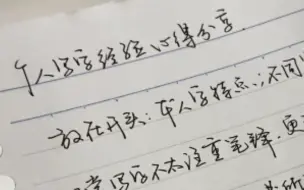 个人写字经验心得分享
放在开头：本人字特点：不同
写字不太注重笔锋，更